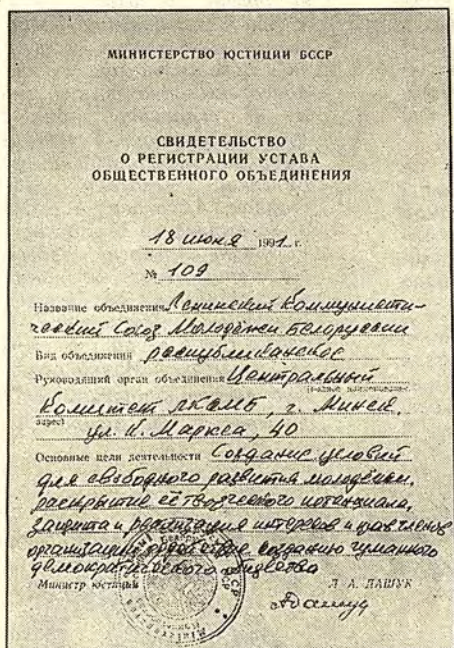 МИНИСТЕРСТВО ЮСТИЦИИ БССР
СВИДЕТЕЛЬСТВО
О РЕГИСТРАЦИИ УСТАВА
ОБЩЕСТВЕННОГО ОБЪЕДИНЕНИЯ
18 июня 1991 г.
№ 109
Название объединения Ленинский Коммунисти-
ческий Союз Молодёжи Белоруссии
Вид объединения республиканское
Руководящий орган объединения Центральный
Комитет ЛКСМБ, г. Минск,
адрес
ул. К. Маркса, 40
Основные цели деятельности Создание условий
для свободного развития молодёжи,
раскрытие её творческого потенциала,
защита и реализация интересов и прав членов
организации, содействие созданию гуманного
демократического общества
Министр юстиции Л. А. ДАШУК